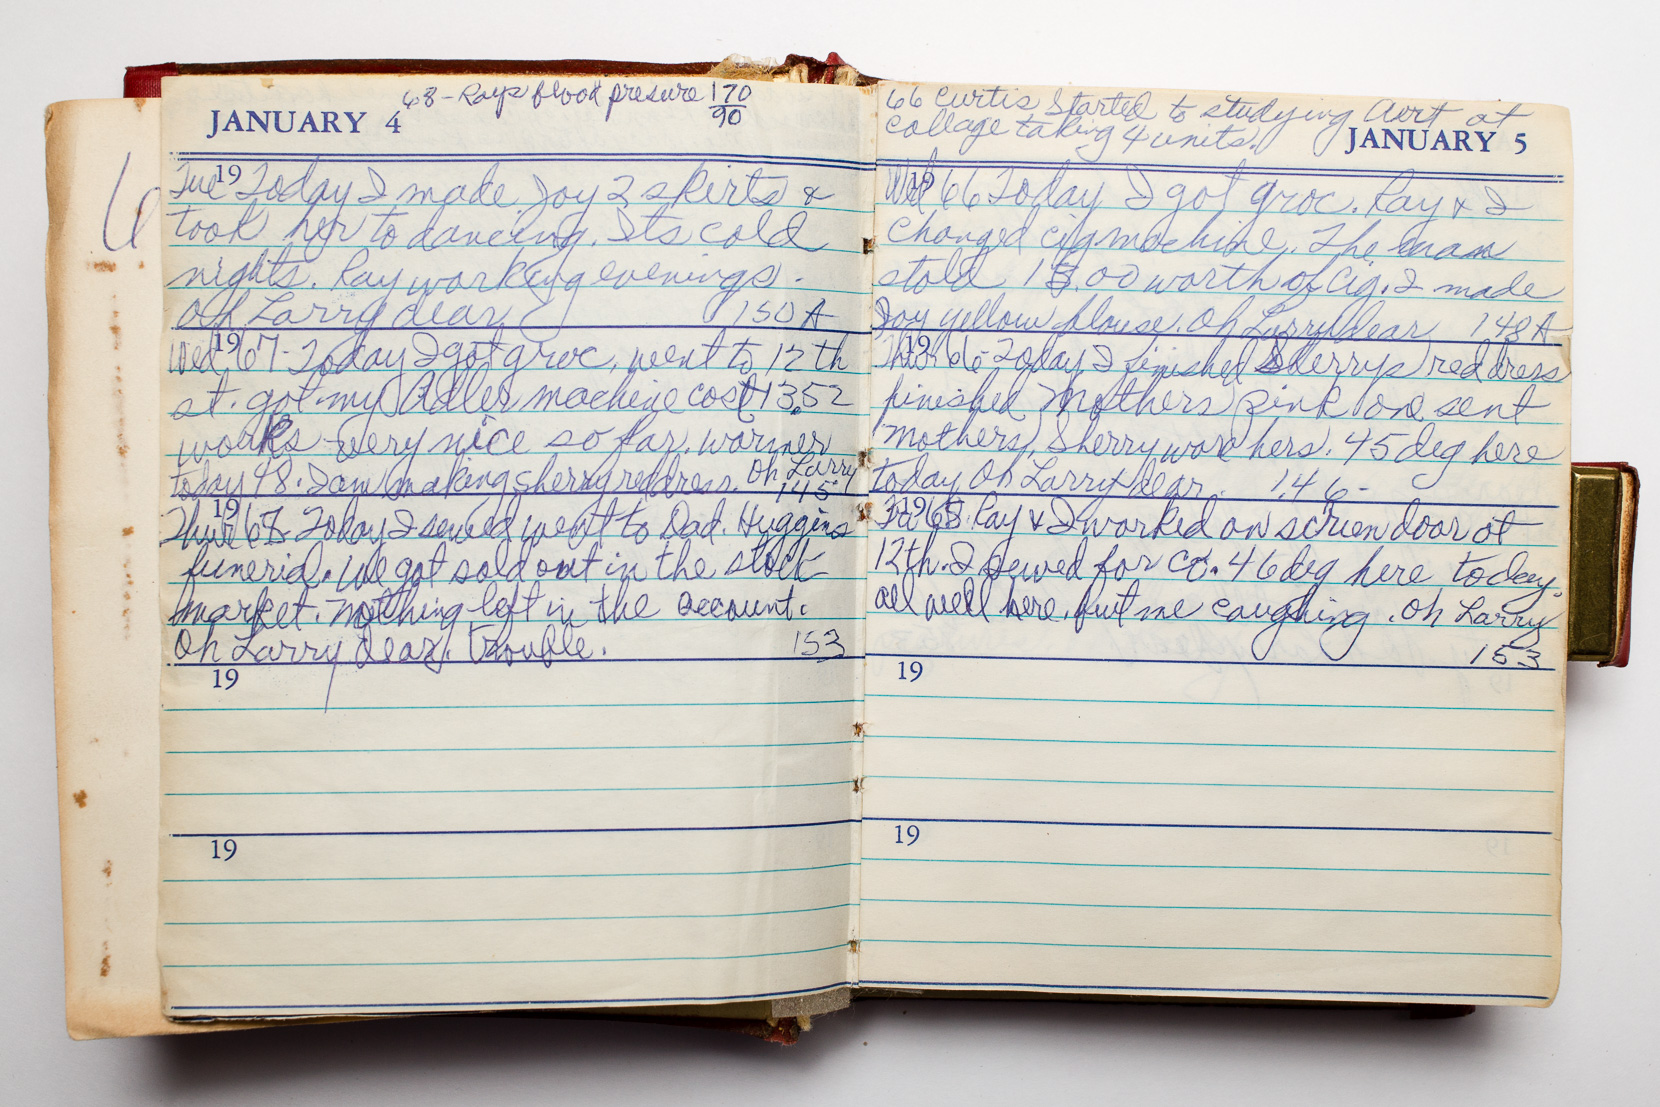 68 - Rays blood presure 170
90
JANUARY 4
Tue 19 Today I made Joy 2 skirts &
took her to dancing. Its cold
nights. Ray working evenings.
Oh Larry dear 150 A
Wed 19 67 - Today I got groc, went to 12th
st. got my Adler machine cost 13.52
works very nice so far. warmer
today 48. I am making sherry red dress. Oh Larry
145
Thur 19 68 Today I sewed went to Dad. Huggins
funerial. We got sold out in the stock
market. nothing left in the account.
Oh Larry dear. Trouble. 153
19
19
66 Curtis Started to studying Avrt at
collage taking 4 units.
JANUARY 5
Wed 19 66 Today I got groc. Ray & I
changed cig machine. The man
stold 15.00 worth of cig. I made
Joy yellow blouse. Oh Larry dear 148 A
Thur 19 66 - Today I finished Sherrys red dress
finished Mothers pink one sent
mothers, Sherry wore hers. 45 deg here
today Oh Larry dear. 146 -
Fri 19 68. Ray & I worked on scrien door at
12th. I sewed for co. 46 deg here today.
all well here, but me caughing. Oh Larry
153
19
19